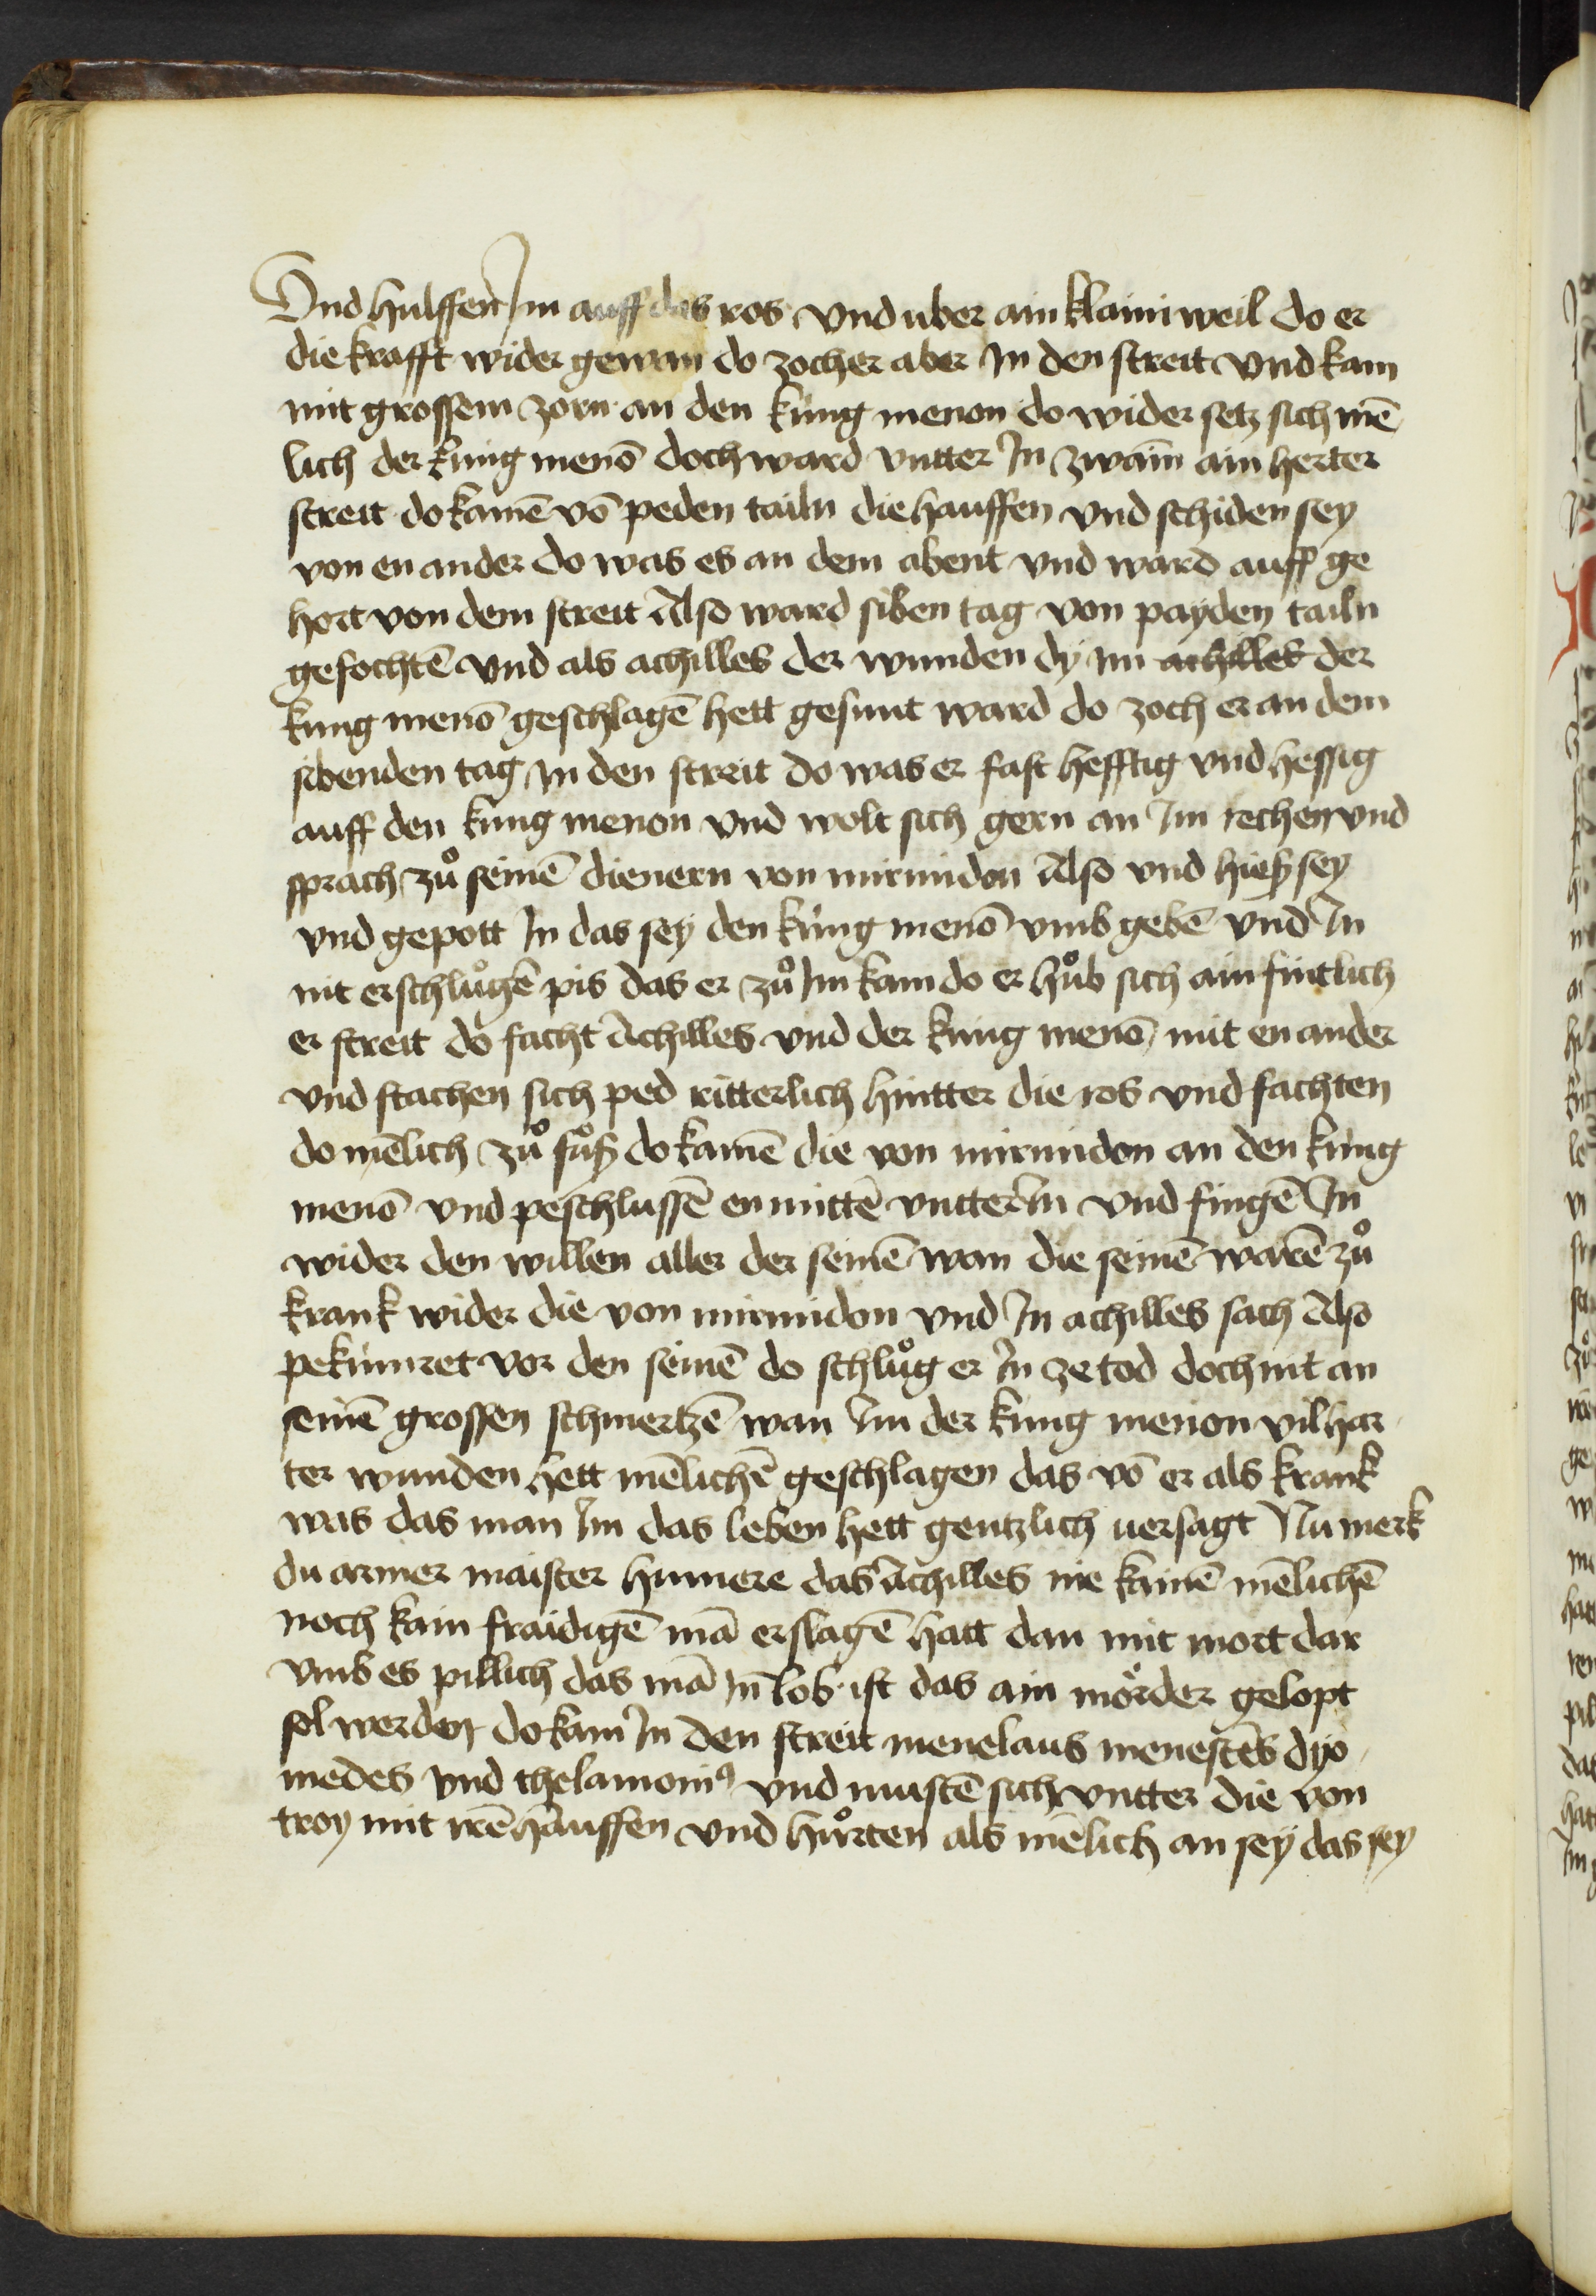 Vnd hulffen Im auff das ros vnd uber ain klaini weil do er
die krafft wider gewan do zocher aber In den streit vnd kam
mit grossem zorn an den kúng menon do wider setz sich mē
lich der kúnig menō doch ward vntter In zwain ain herter
streit do kamē vō peden tailn die hauffen vnd schiden sey
von en ander do was es an dem abent vnd ward auff ge
hort von dem streit Also ward siben tag von payden tailn
gefochtē vnd als achilles der wunden dy im achilles der
kung menō geschlagē hett gesunt ward do zoch er an dem
sibenden tag In den streit do was er fast hefftig vnd hessig
auff den kung menon vnd wolt sich gern an Im rechen vnd
sprach zů seinē dienern von mirmidon Also vnd hieß sey
vnd gepott In das sey den kúng menō vmb gebē vnd In
nit erschlůgē pis das er zů Im kam do er hůb sich ain fintlich
er streit do facht Achilles vnd der kung menō mit en ander
vnd stachen sich ped ritterlich hintter die ros vnd fachten
do mēlich zů fůß do kamē die von mirmidon an den kúng
menō vnd peschlussē en mittē vntter In vnd fingē In
wider den willen aller der seinē wan die seinē warē zů
krank wider die von mirmidon vnd In achilles sach Also
pekúmret vor den seinē do schlůg er In ze tod doch nit an
seinē grossen schmertzē wan Im der kúng menon vil har
ter wunden hett mēlichē geschlagen das vō er als krank
was das man Im das leben hett gentzlich uersagt Nu merk
du armer maister humere das Achilles nie kainē mēlichē
noch kain fraidigē mā erslagē hatt dan mit mort dar
vmb es pillich das mā In lob ist das ain mörder gelopt
sol werden do kam In den streit menelaus menestes dyo
medes vnd thelamoniꝰ vnd mustē sich vntter die von
troy mit irē hauffen vnd hůrten als mēlich an sey das sey